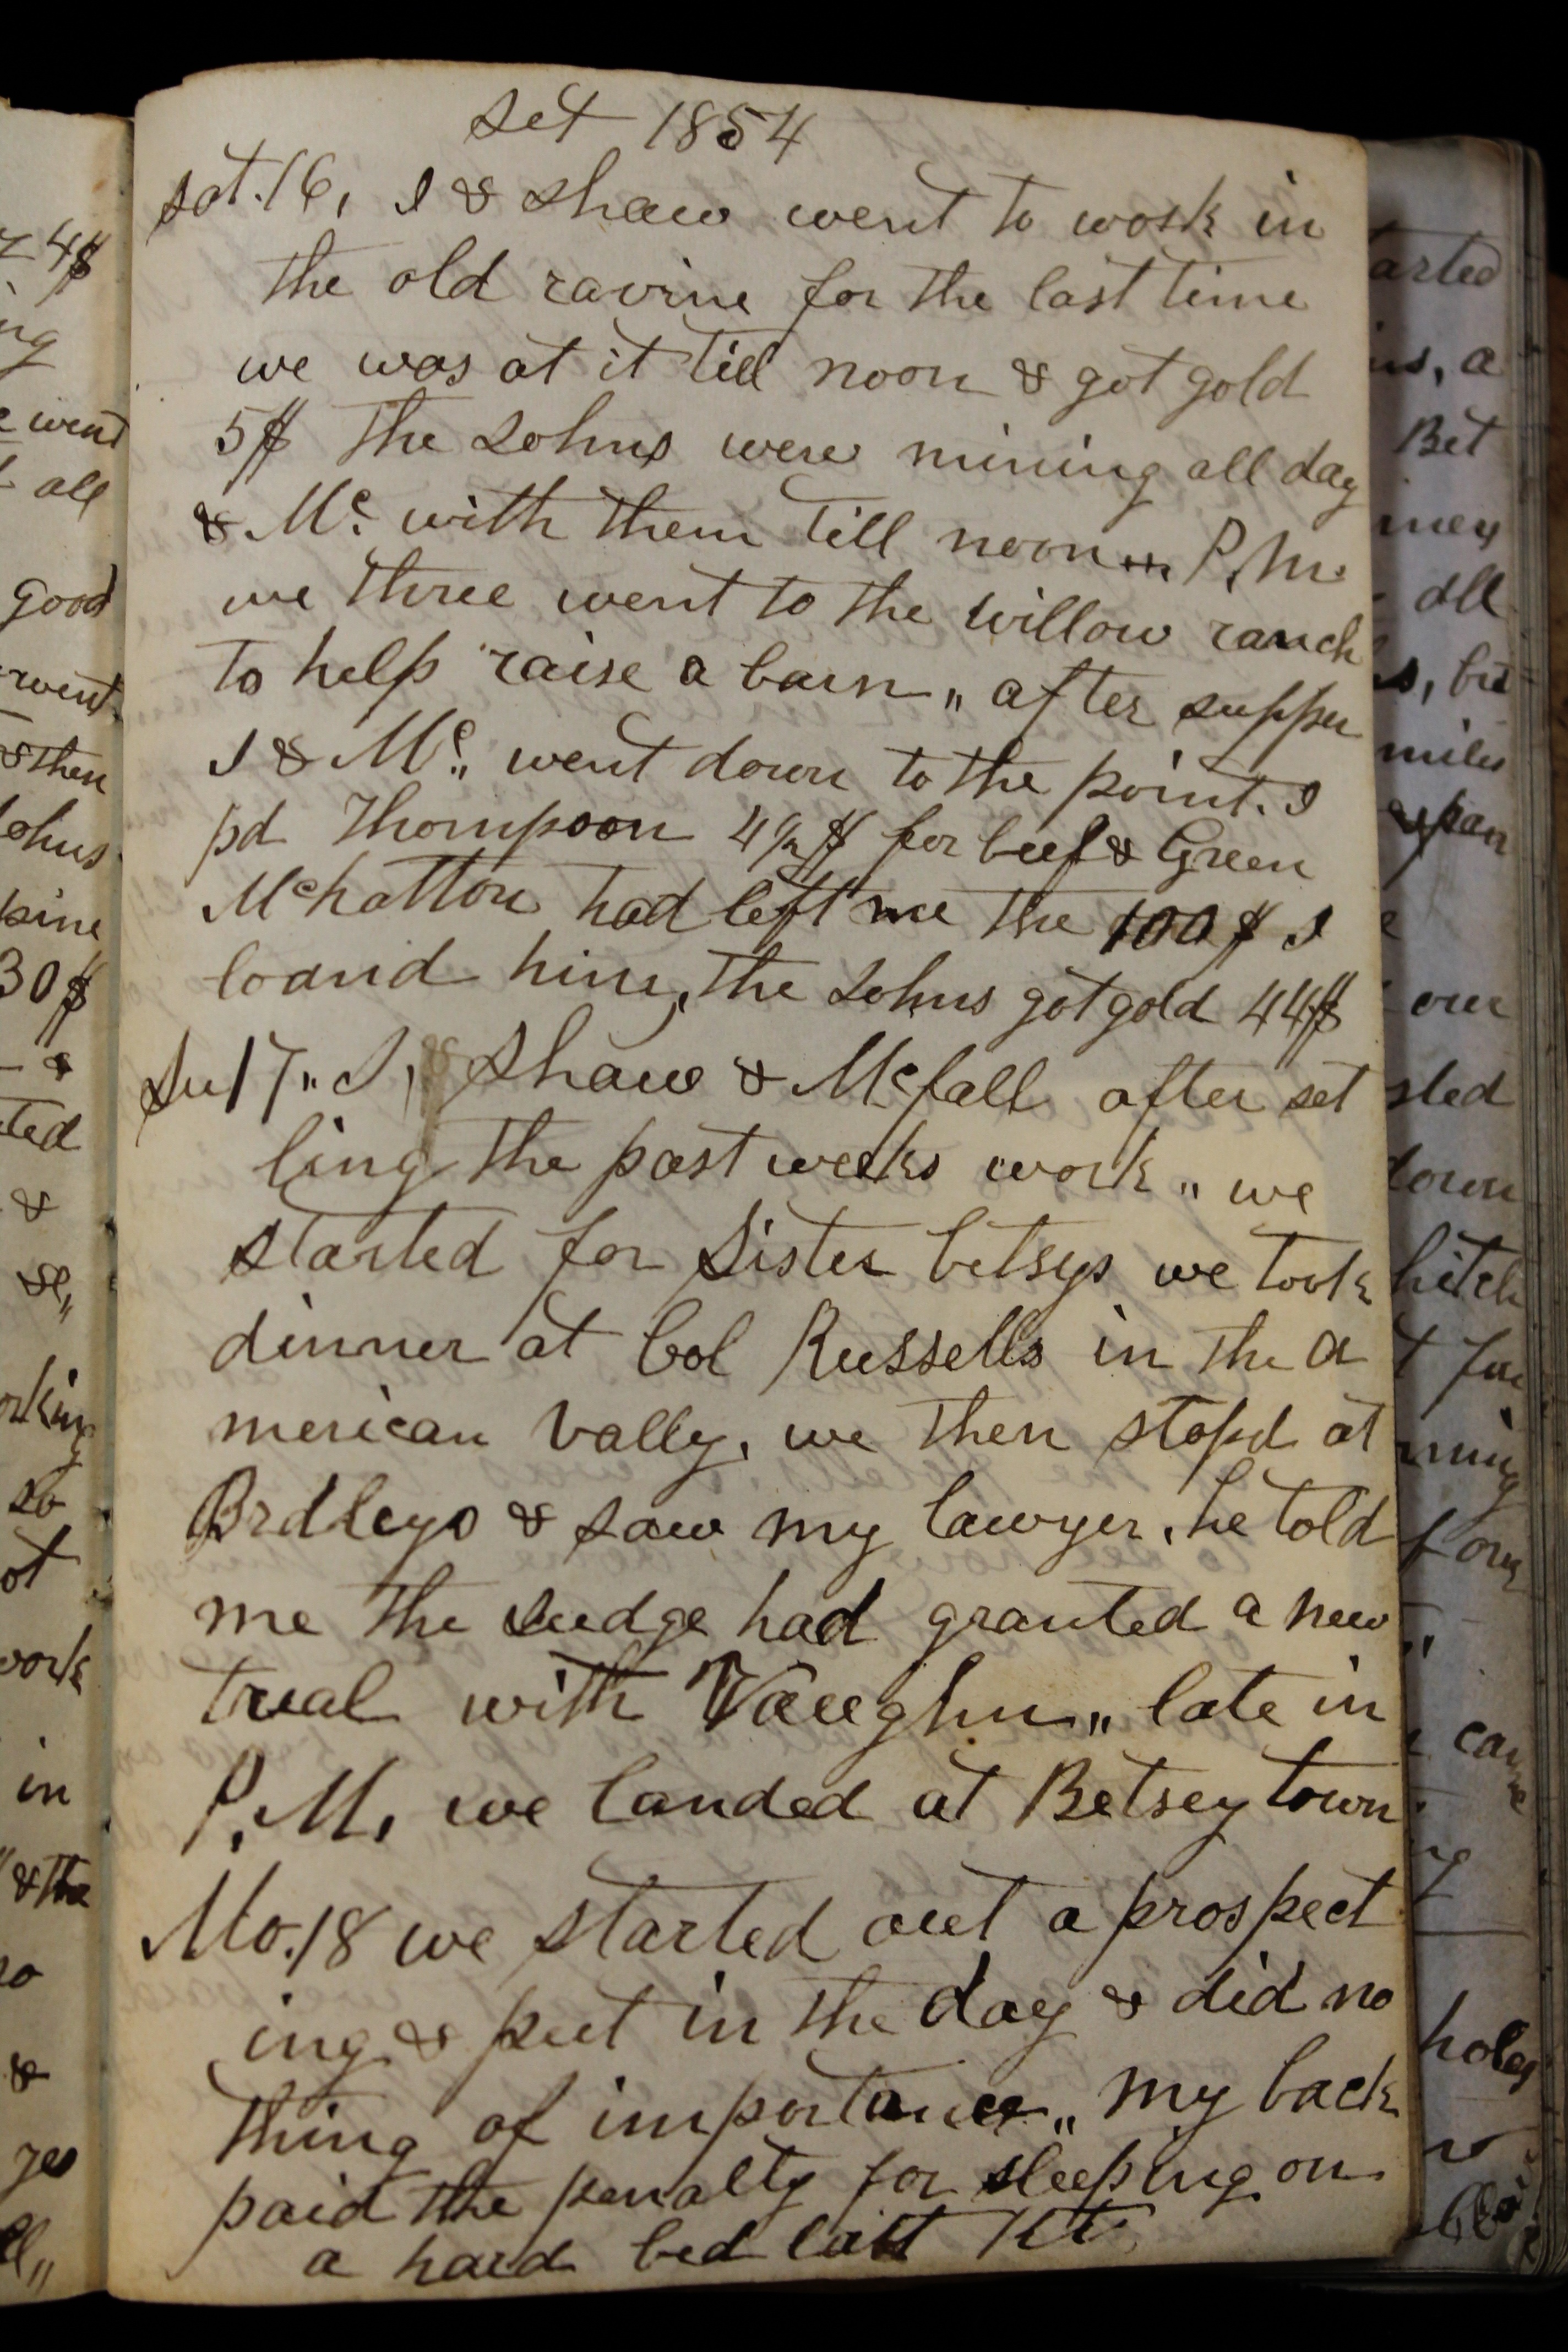 Set 1854
sat. 16, I & Shaw went to work in
the old ravine for the last time
we was at it till noon & got gold
5$ The Johns were mining all day
& Mc. with them till noon ,,, P.M.
we three went to the willow ranch
to help raise a barn ,, after supper
I & Mc ,, went down to the point. I
pd Thompson 4 1/2 $ for beef & Green
McHatton had left me the 100 $ I
loand him, the Johns got gold 44$
Su 17 ,, I, Shaw & Mcfall after set
ling the past weeks work ,, we
started for Sister betsys we took
dinner at Col Russells in the a
merican vally, we then stopd at
Brdleys & saw my lawyer, he told
me the Judge had granted a new
trual with Vaughn ,, late in
P.M. we landed at Betsey town
Mo. 18 we started out a prospect
ing & put in the day & did no
thing of importance ,, my back
paid the penalty for sleeping on
a hard bed last
arted
, a
Bet
ney
all
, but
miles
our
down
hitch
t for
ning
f our
holes
4$
ng
went
all
good
went
& then
Johns
pine
30$
ted
&
&c ,,
orking
so
ot
work
in
& the
&